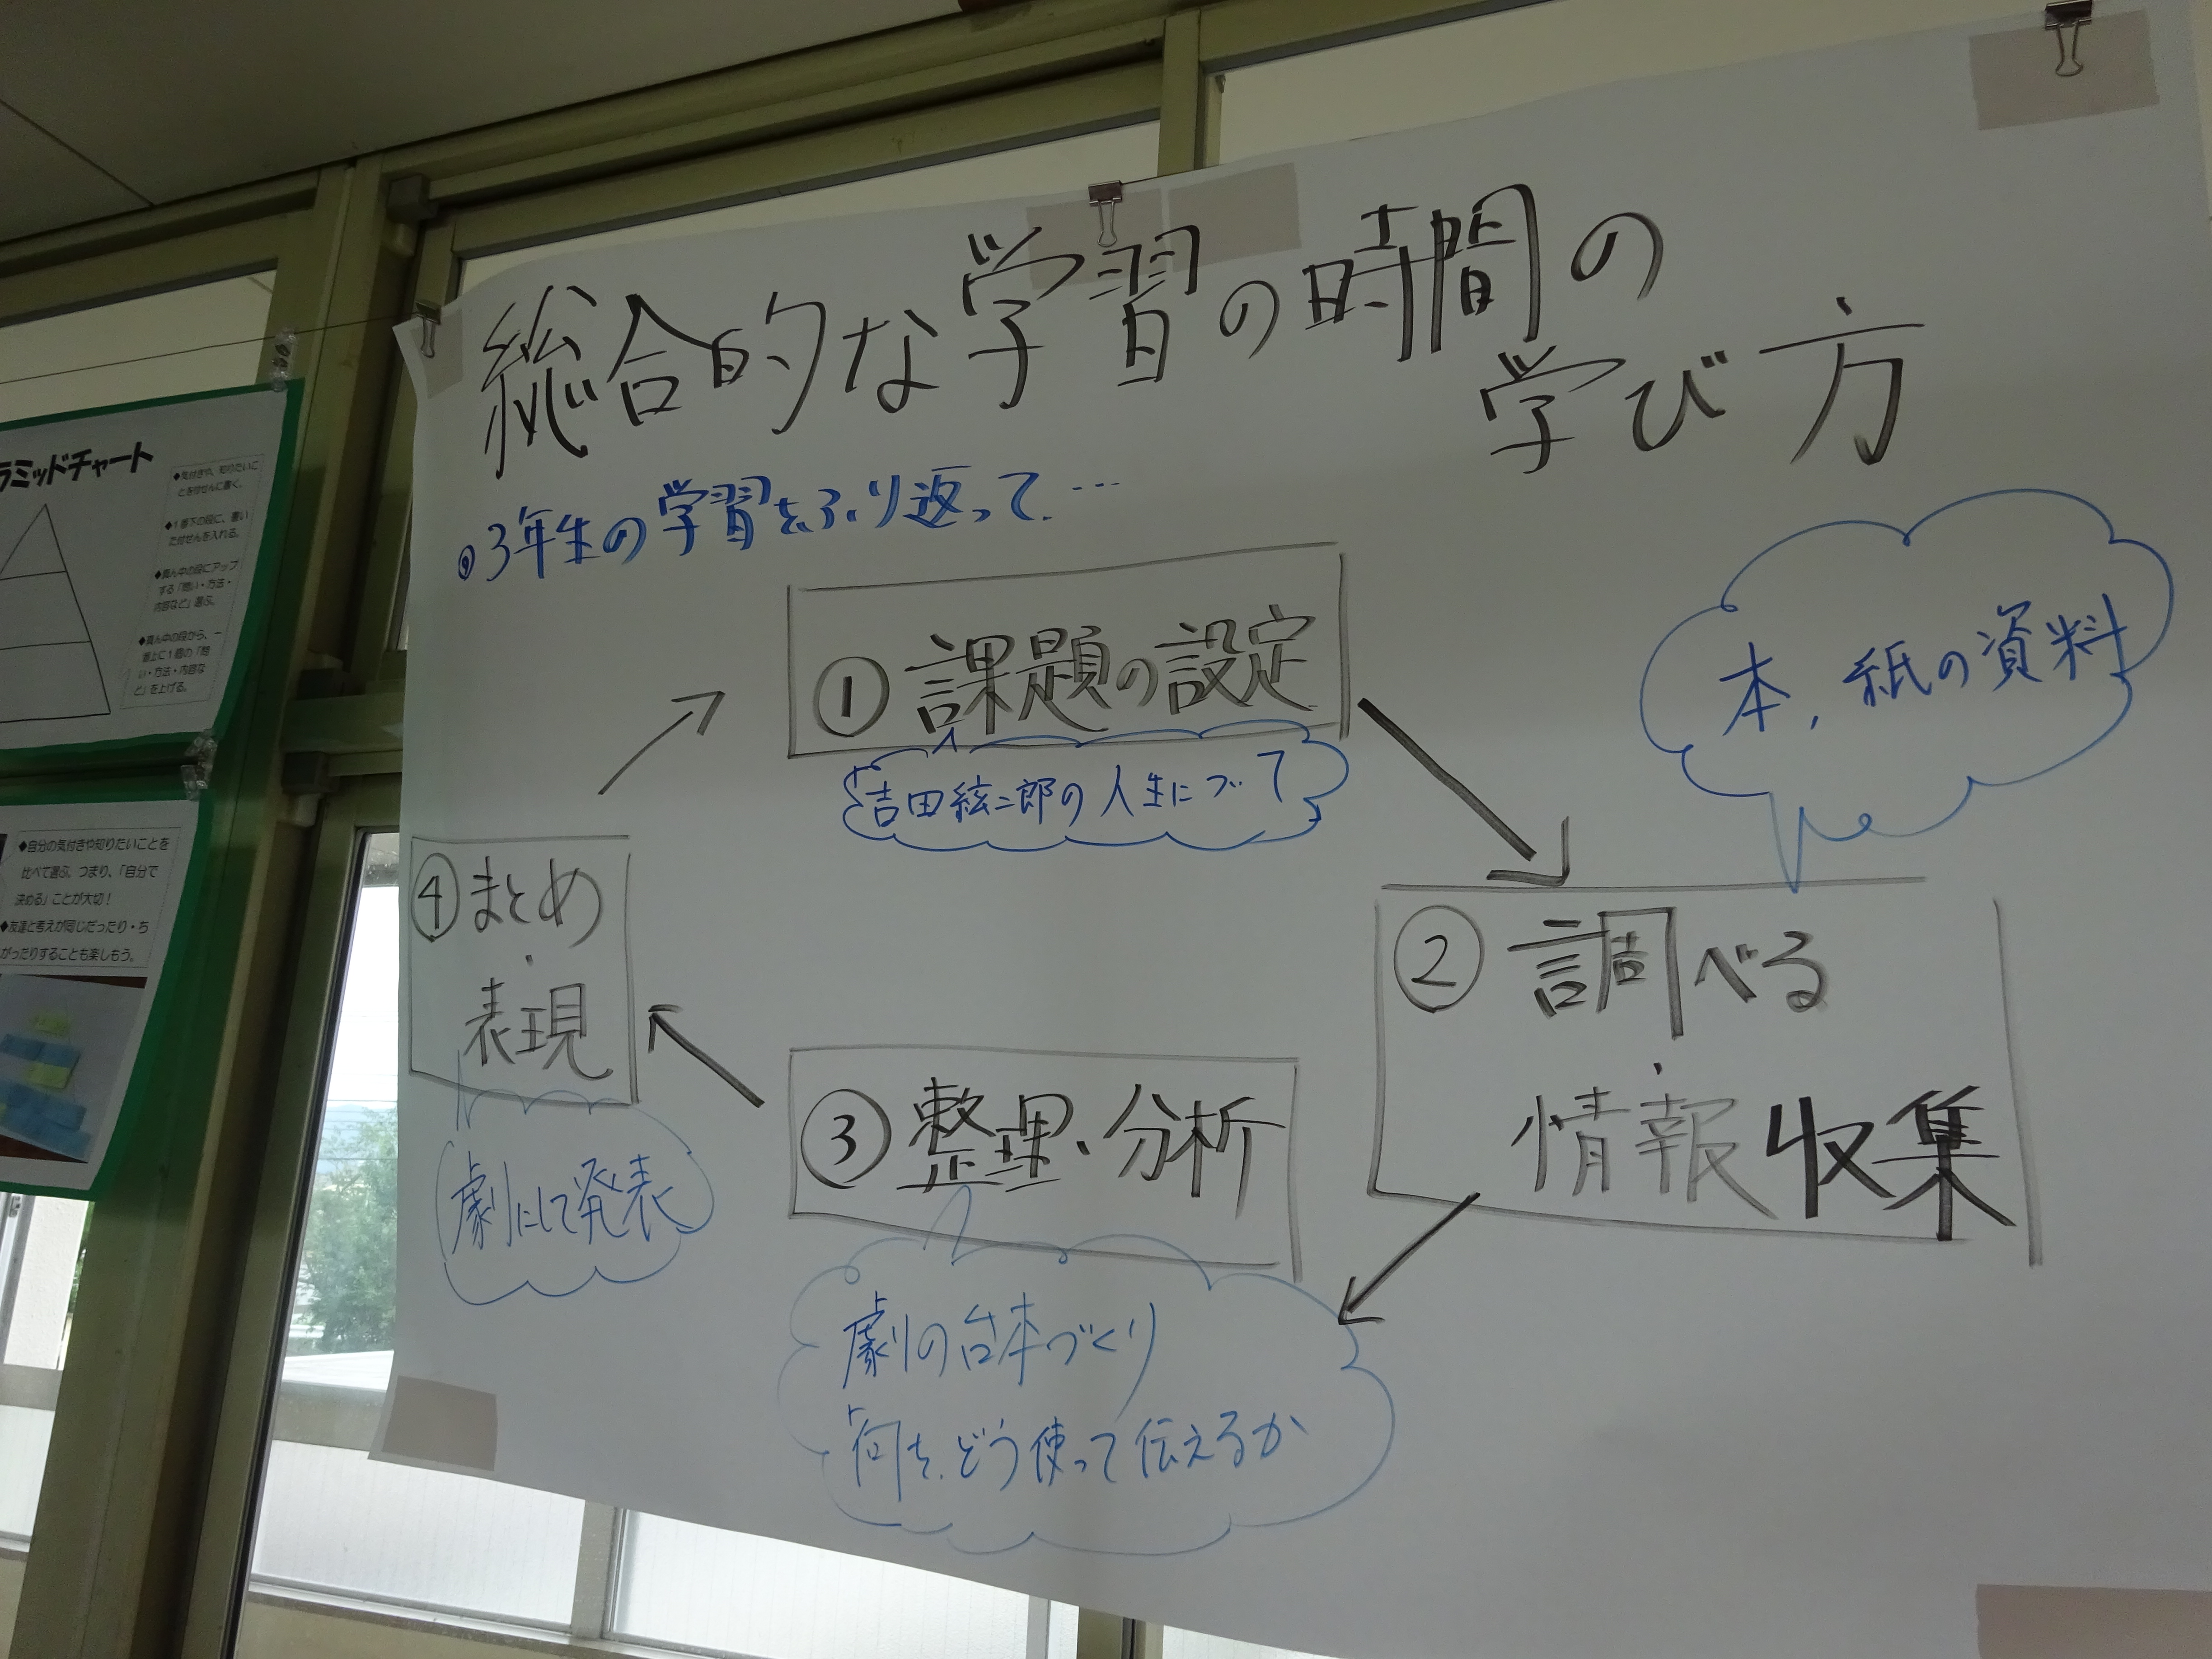 総合的な学習の時間の
学び方
◎3年生の学習をふり返って…
①課題の設定
吉田絃二郎の人生について
本,紙の資料
②調べる
・
情報収集
③整理・分析
劇の台本づくり
何を、どう使って伝えるか
④まとめ
・
表現
劇にして発表
ラミッドチャート
◆気付きや、知りたいこ
とを付せんに書く。
◆1番下の段に、書い
た付せんを入れる。
◆真ん中の段にアップ
する「問い・方法・
内容など」選ぶ。
◆真ん中の段から、一
番上に1個の「問
い・方法・内容な
ど」を上げる。
◆自分の気付きや知りたいことを
比べて選ぶ、つまり、「自分で
決める」ことが大切!
◆友達と考えが同じだったり・ち
がったりすることも楽しもう。